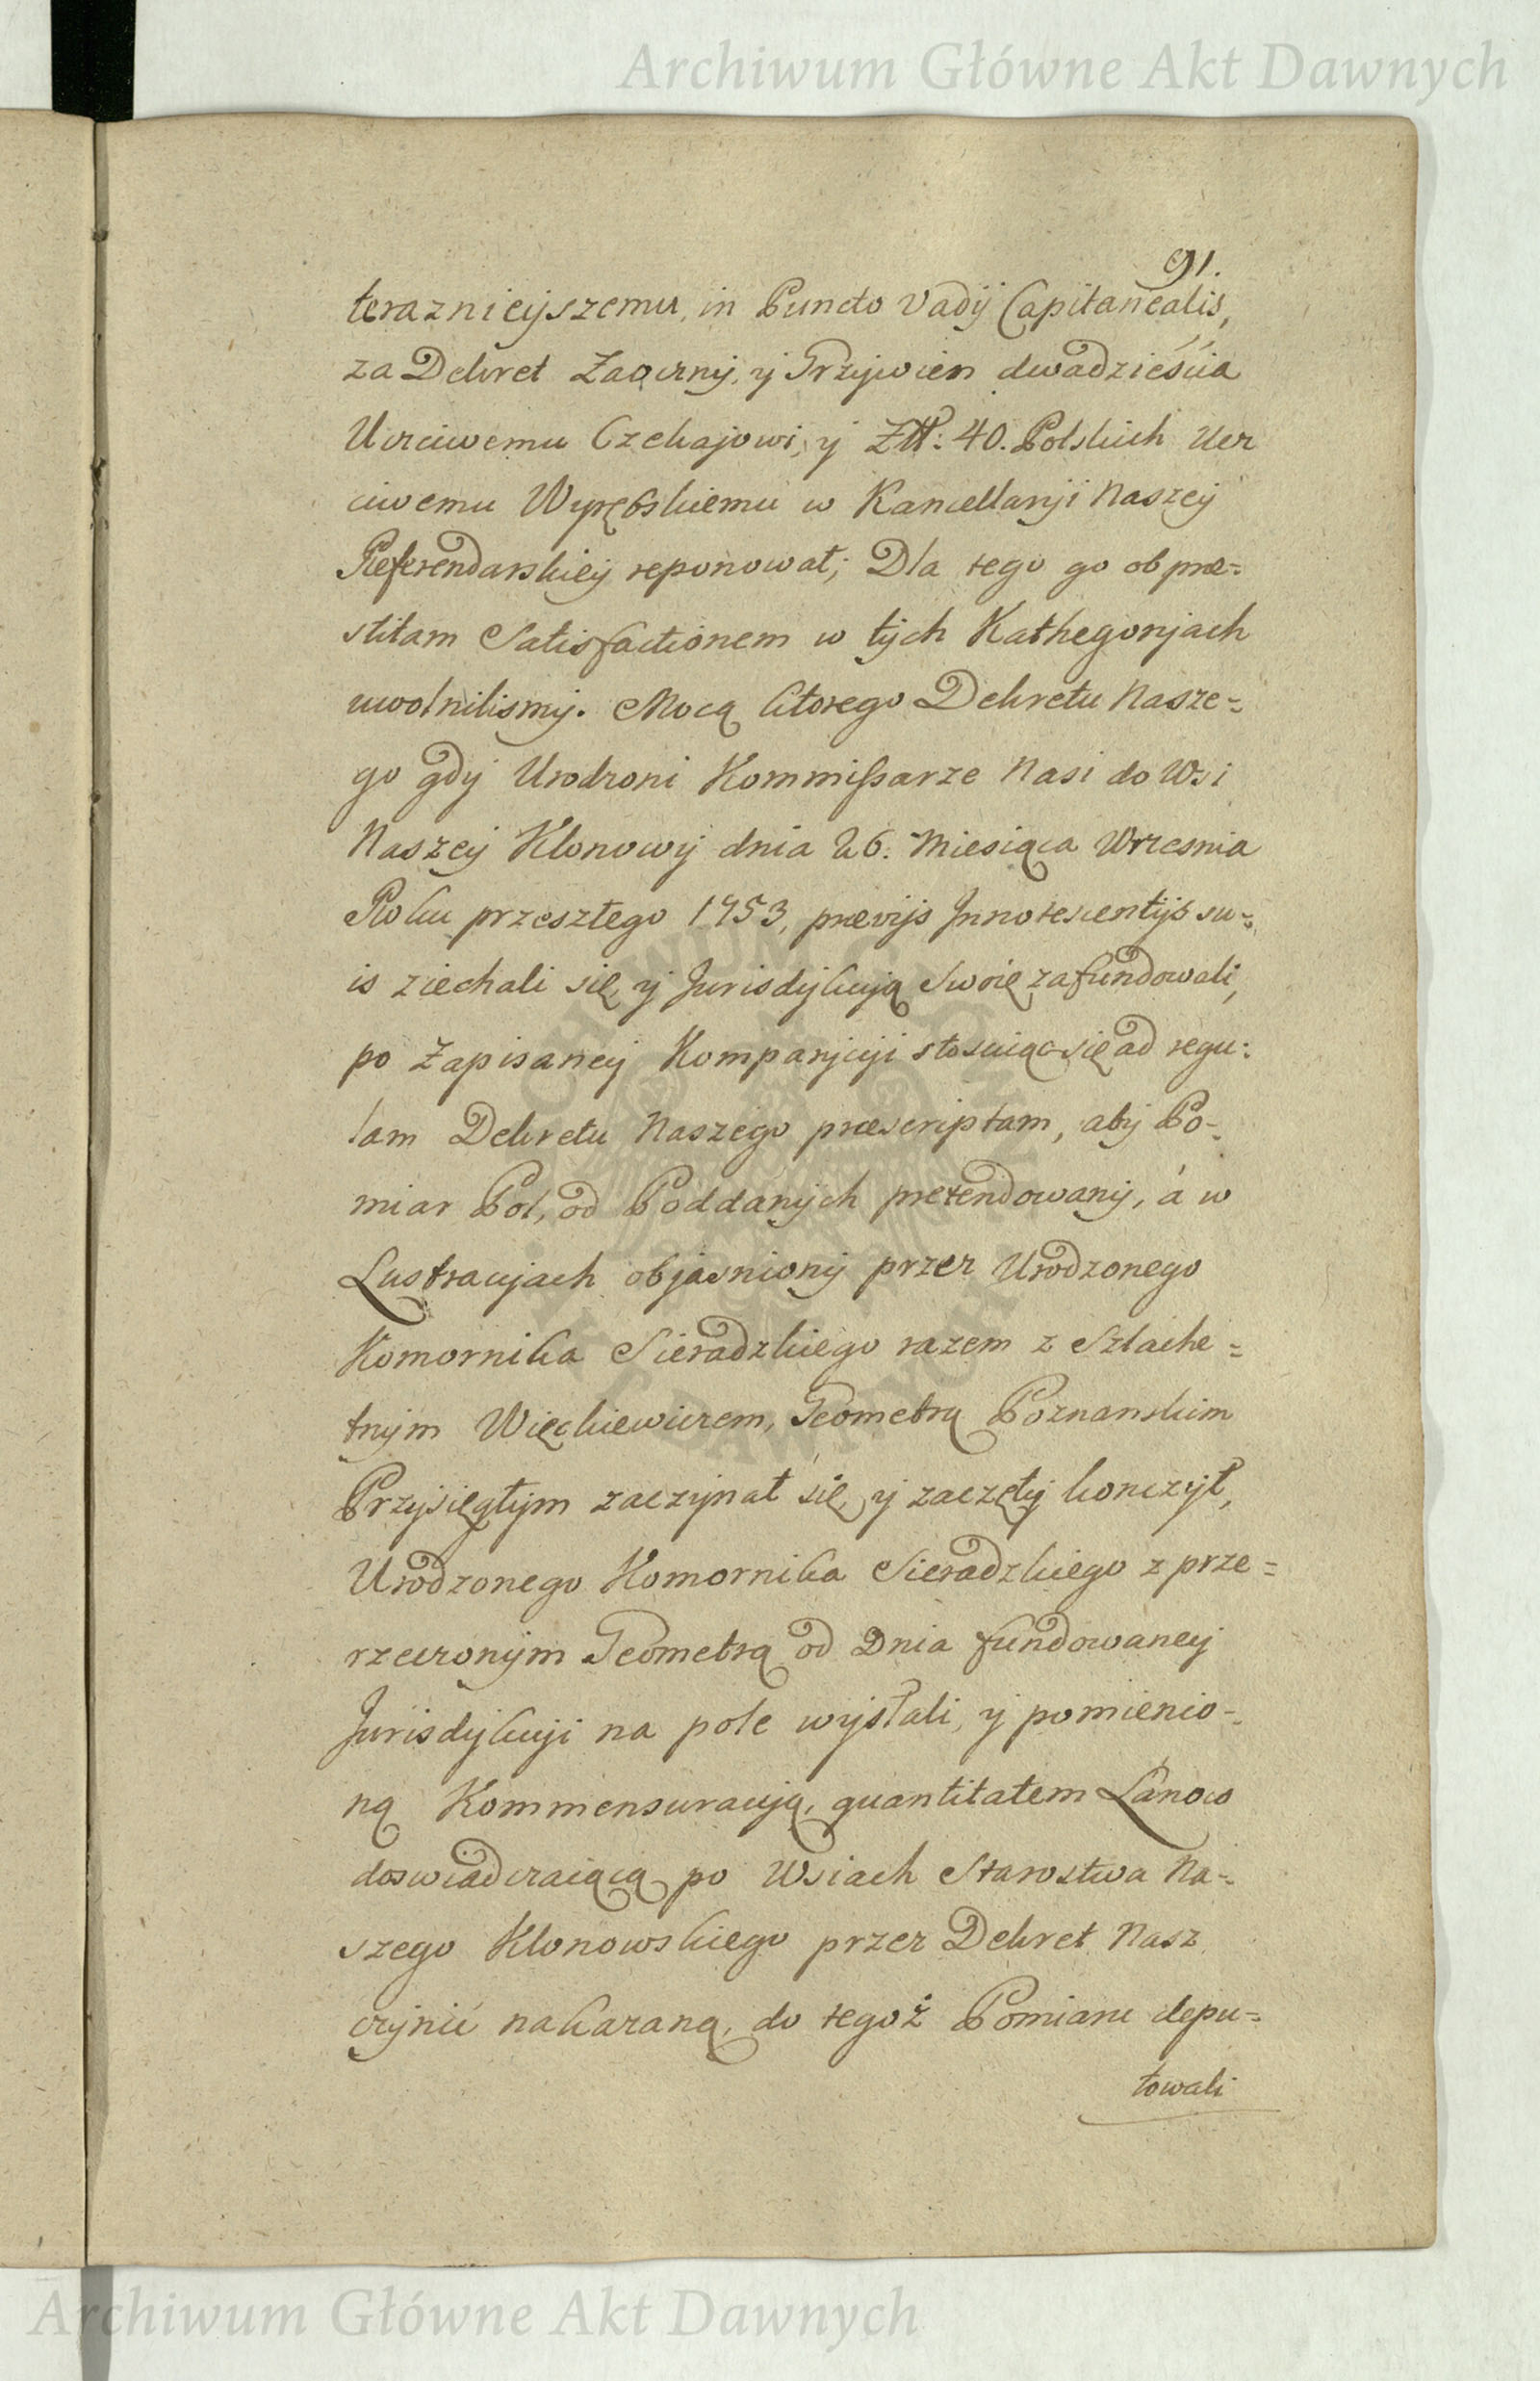 Archiwum Główne Akt Dawnych
91.
teraznieyszemu, in Puncto Vadij Capitanealis,
za Dekret Zaoczny, y Grzywien dwadzieścia
Uczciwemu Czekajowi, y Złł: 40. Polskich Ucz
ciwemu Wyrębskiemu w Kancellaryi Naszey
Referendarskiey reponował; Dla tego go ob præ-
stitam Satisfactionem w tych Kathegoryach
uwolnilismy. Mocą ktorego Dekretu Nasze-
go gdy Urodzoni Kommissarze Nasi do Wsi
Naszey Klonowy dnia 26. Miesiąca Wrzesnia
Roku przeszłego 1753, prævijs Innotescentijs su-
is ziechali się y Jurisdykcyą Swoię zafundowali,
po Zapisaney Komparycyi stosuiąc się ad regu-
lam Dekretu Naszego præscriptam, aby Po-
miar Pol, od Poddanych pretendowany, á w
Lustracyach objasniony przez Urodzonego
Komornika Sieradzkiego razem z Szlache-
tnym Więckiewiczem, Geometrą Poznanskim
Przysięgłym zaczynał się, y zaczęty konczył,
Urodzonego Komornika Sieradzkiego z prze-
rzeczonym Geometrą od Dnia fundowaney
Jurisdykcyi na pole wysłali, y pomienio-
ną Kommensuracyą, quantitatem Łanow
doswiadczaiącą po Wsiach Starostwa Na-
szego Klonowskiego przez Dekret Nasz
czynić nakazaną, do tegoż Pomiaru depu-
towali
Archiwum Główne Akt Dawnych